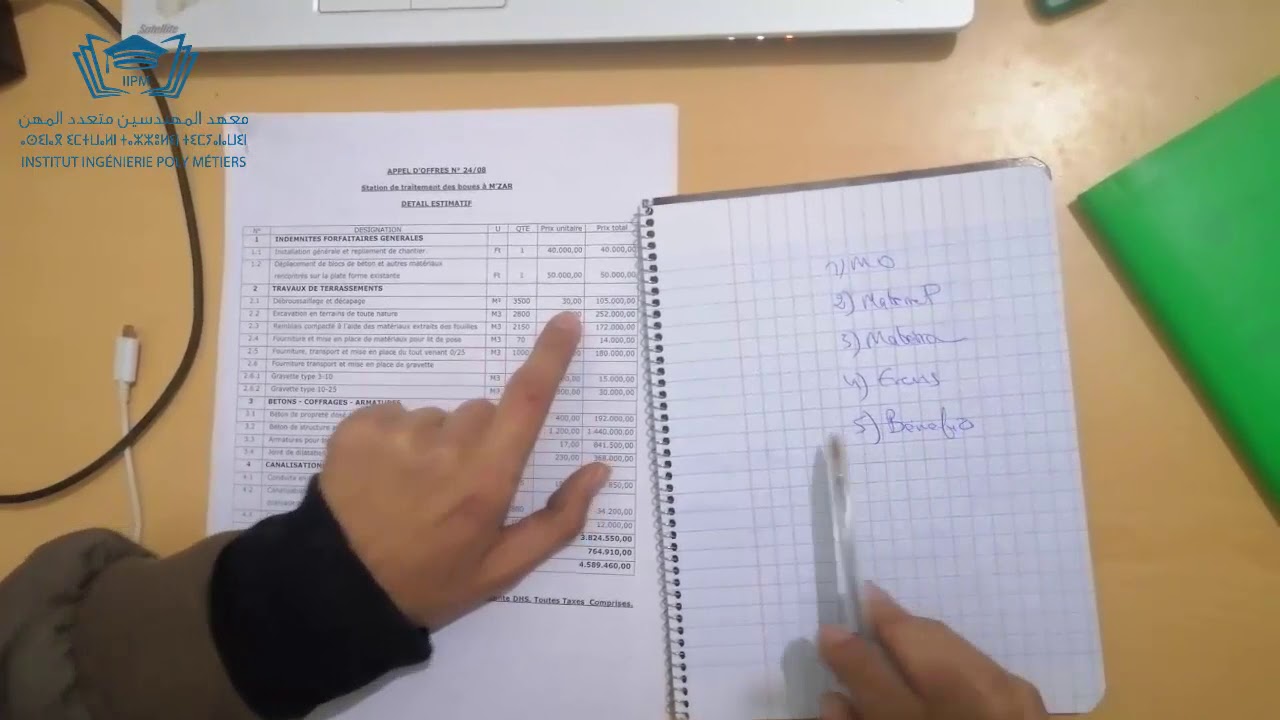 Satellite
IIPM
معهد المهندسين متعدد المهن
INSTITUT INGÉNIERIE POLY MÉTIERS
APPEL D'OFFRES N° 24/08
Station de traitement des boues à M'ZAR
DETAIL ESTIMATIF
N° DESIGNATION U QTE Prix unitaire Prix total
1 INDEMNITES FORFAITAIRES GENERALES
1.1 Installation générale et repliement de chantier Ft 1 40.000,00 40.000,00
1.2 Déplacement de blocs de béton et autres matériaux
rencontrés sur la plate forme existante Ft 1 50.000,00 50.000,00
2 TRAVAUX DE TERRASSEMENTS
2.1 Débroussaillage et décapage M² 3500 30,00 105.000,00
2.2 Excavation en terrains de toute nature M3 2800 252.000,00
2.3 Remblais compacté à l'aide des matériaux extraits des fouilles M3 2150 172.000,00
2.4 Fourniture et mise en place de matériaux pour lit de pose M3 70 14.000,00
2.5 Fourniture, transport et mise en place du tout venant 0/25 M3 1000 180.000,00
2.6 Fourniture transport et mise en place de gravette
2.6.1 Gravette type 3-10 M3 15.000,00
2.6.2 Gravette type 10-25 30.000,00
3 BETONS - COFFRAGES - ARMATURES
3.1 Béton de propreté 400,00 192.000,00
3.2 Béton de structure 1.200,00 1.440.000,00
3.3 Armatures pour 17,00 841.500,00
3.4 Joint de 230,00 368.000,00
4 CANALISATION
4.1 Conduite en
4.2 34.200,00
12.000,00
3.824.550,00
764.910,00
4.589.460,00
DHS. Toutes Taxes Comprises.
1) MO
2) Materiel
3) Materiaux
4) Frais
5) Benefice